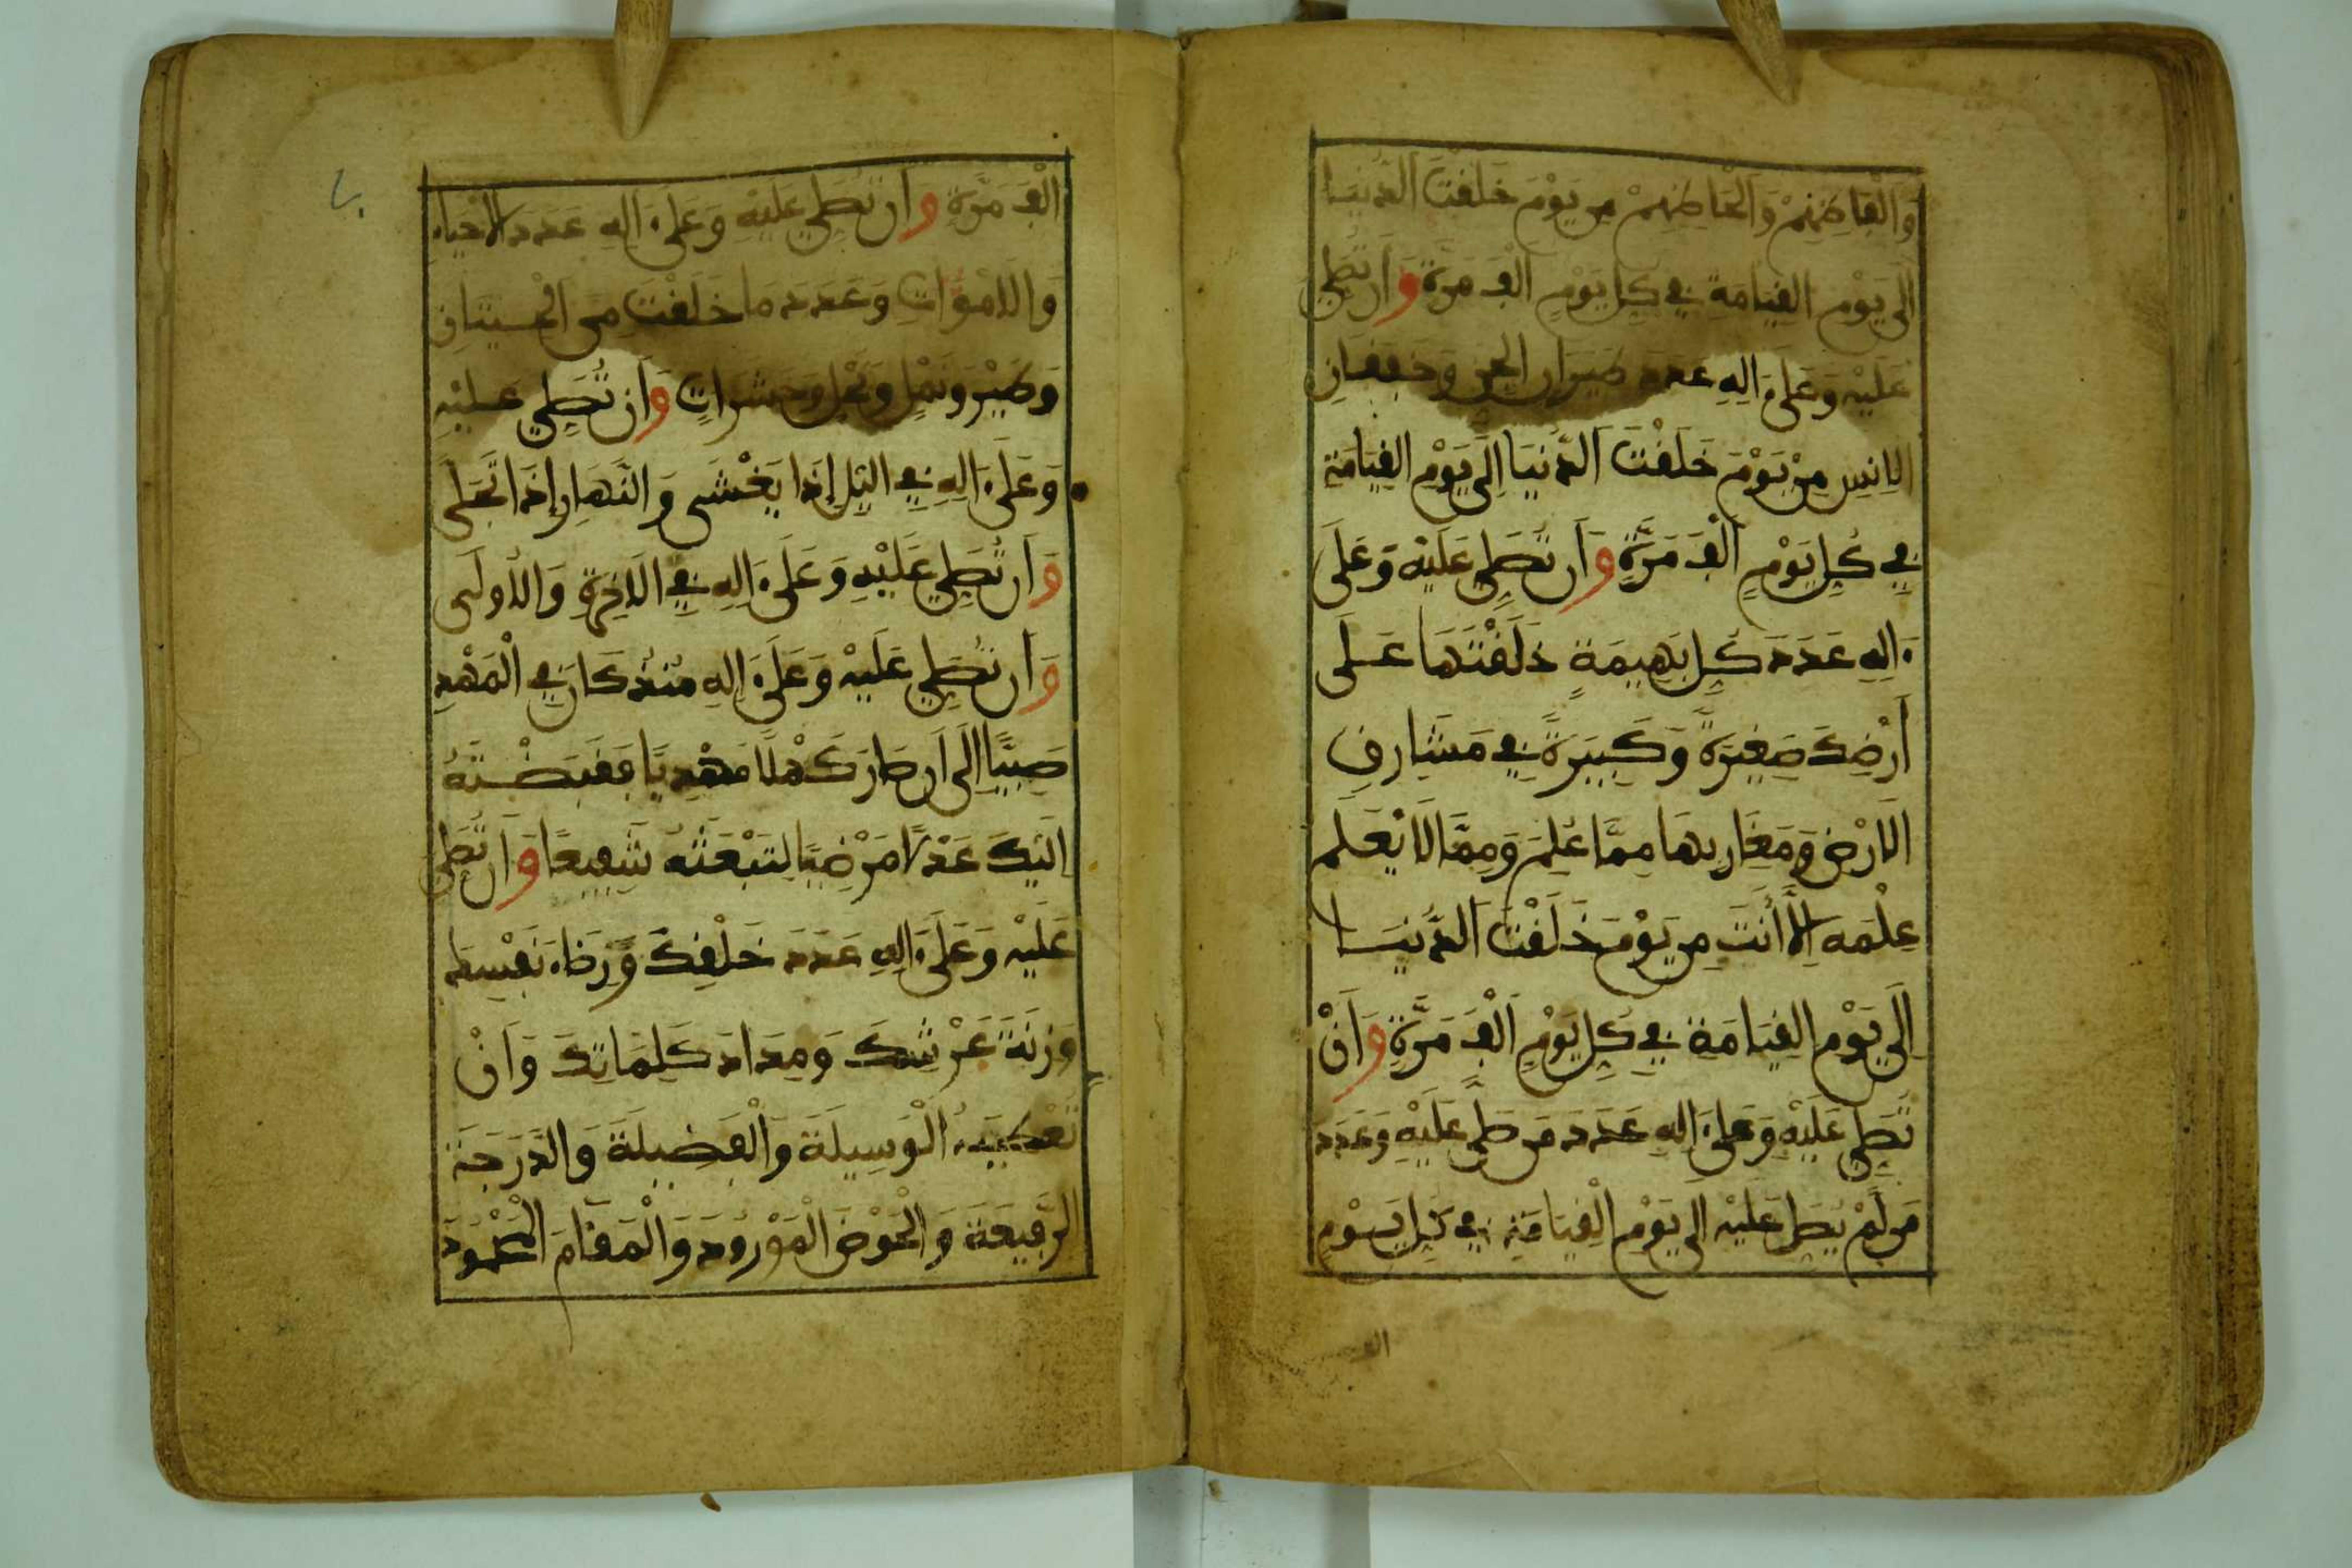 وَالْفَاطِهِمْ وَالْحَاطِهِمْ مِن يَوْمَ خَلَقْتَ الدُّنْيَا
إِلَى يَوْمِ الْقِيَامَةِ فِي كُلِّ يَوْمٍ أَلْفَ مَرَّةٍ وَأَن تُصَلِّيَ
عَلَيْهِ وَعَلَىٰ ءَالِهِ عَدَدَ طَيَرَانِ الْجِنِّ وَخَفَقَانِ
الْإِنسِ مِنْ يَوْمَ خَلَقْتَ الدُّنْيَا إِلَى يَوْمِ الْقِيَامَةِ
فِي كُلِّ يَوْمٍ أَلْفَ مَرَّةٍ وَأَن تُصَلِّيَ عَلَيْهِ وَعَلَى
ءَالِهِ عَدَدَ كُلِّ بَهِيمَةٍ خَلَقْتَهَا عَلَى
أَرْضِكَ صَغِيرَةً وَكَبِيرَةً فِي مَشَارِقِ
الْأَرْضِ وَمَغَارِبِهَا مِمَّا عُلِمَ وَمِمَّا لَا يَعْلَمُ
عِلْمَهُ إِلَّا أَنتَ مِن يَوْمَ خَلَقْتَ الدُّنْيَا
إِلَى يَوْمِ الْقِيَامَةِ فِي كُلِّ يَوْمٍ أَلْفَ مَرَّةٍ وَأَنْ
تُصَلِّيَ عَلَيْهِ وَعَلَىٰ ءَالِهِ عَدَدَ مَن صَلَّى عَلَيْهِ وَعَدَدَ
مَن لَمْ يُصَلِّ عَلَيْهِ إِلَى يَوْمِ الْقِيَامَةِ فِي كُلِّ يَوْمٍ
الف
أَلْفَ مَرَّةٍ وَأَن تُصَلِّيَ عَلَيْهِ وَعَلَىٰ ءَالِهِ عَدَدَ الْأَحْيَاءِ
وَالْأَمْوَاتِ وَعَدَدَ مَا خَلَقْتَ مِن الْحِيتَانِ
وَطَيْرٍ وَنَمْلٍ وَنَحْلٍ وَحَشَرَاتٍ وَأَن تُصَلِّيَ عَلَيْهِ
وَعَلَىٰ ءَالِهِ فِي الَّيْلِ إِذَا يَغْشَى وَالنَّهَارِ إِذَا تَجَلَّى
وَأَن تُصَلِّيَ عَلَيْهِ وَعَلَىٰ ءَالِهِ فِي الْأَخِرَةِ وَالْأُولَى
وَأَن تُصَلِّيَ عَلَيْهِ وَعَلَىٰ ءَالِهِ مُنْذُ كَانَ فِي الْمَهْدِ
صَبِيًّا إِلَى أَن صَارَ كَهْلًا مَهْدِيًّا فَقَبَضْتَهُ
إِلَيْكَ عَدْلًا مَرْضِيًّا لِتَبْعَثَهُ شَفِيعًا وَأَن تُصَلِّيَ
عَلَيْهِ وَعَلَىٰ ءَالِهِ عَدَدَ خَلْقِكَ وَرِضَاءَ نَفْسِكَ
وَزِنَةَ عَرْشِكَ وَمِدَادَ كَلِمَاتِكَ وَأَنْ
تُعْطِيَهُ الْوَسِيلَةَ وَالْفَضِيلَةَ وَالدَّرَجَةَ
الرَّفِيعَةَ وَالْحَوْضَ الْمَوْرُودَ وَالْمَقَامَ الْمَحْمُودَ